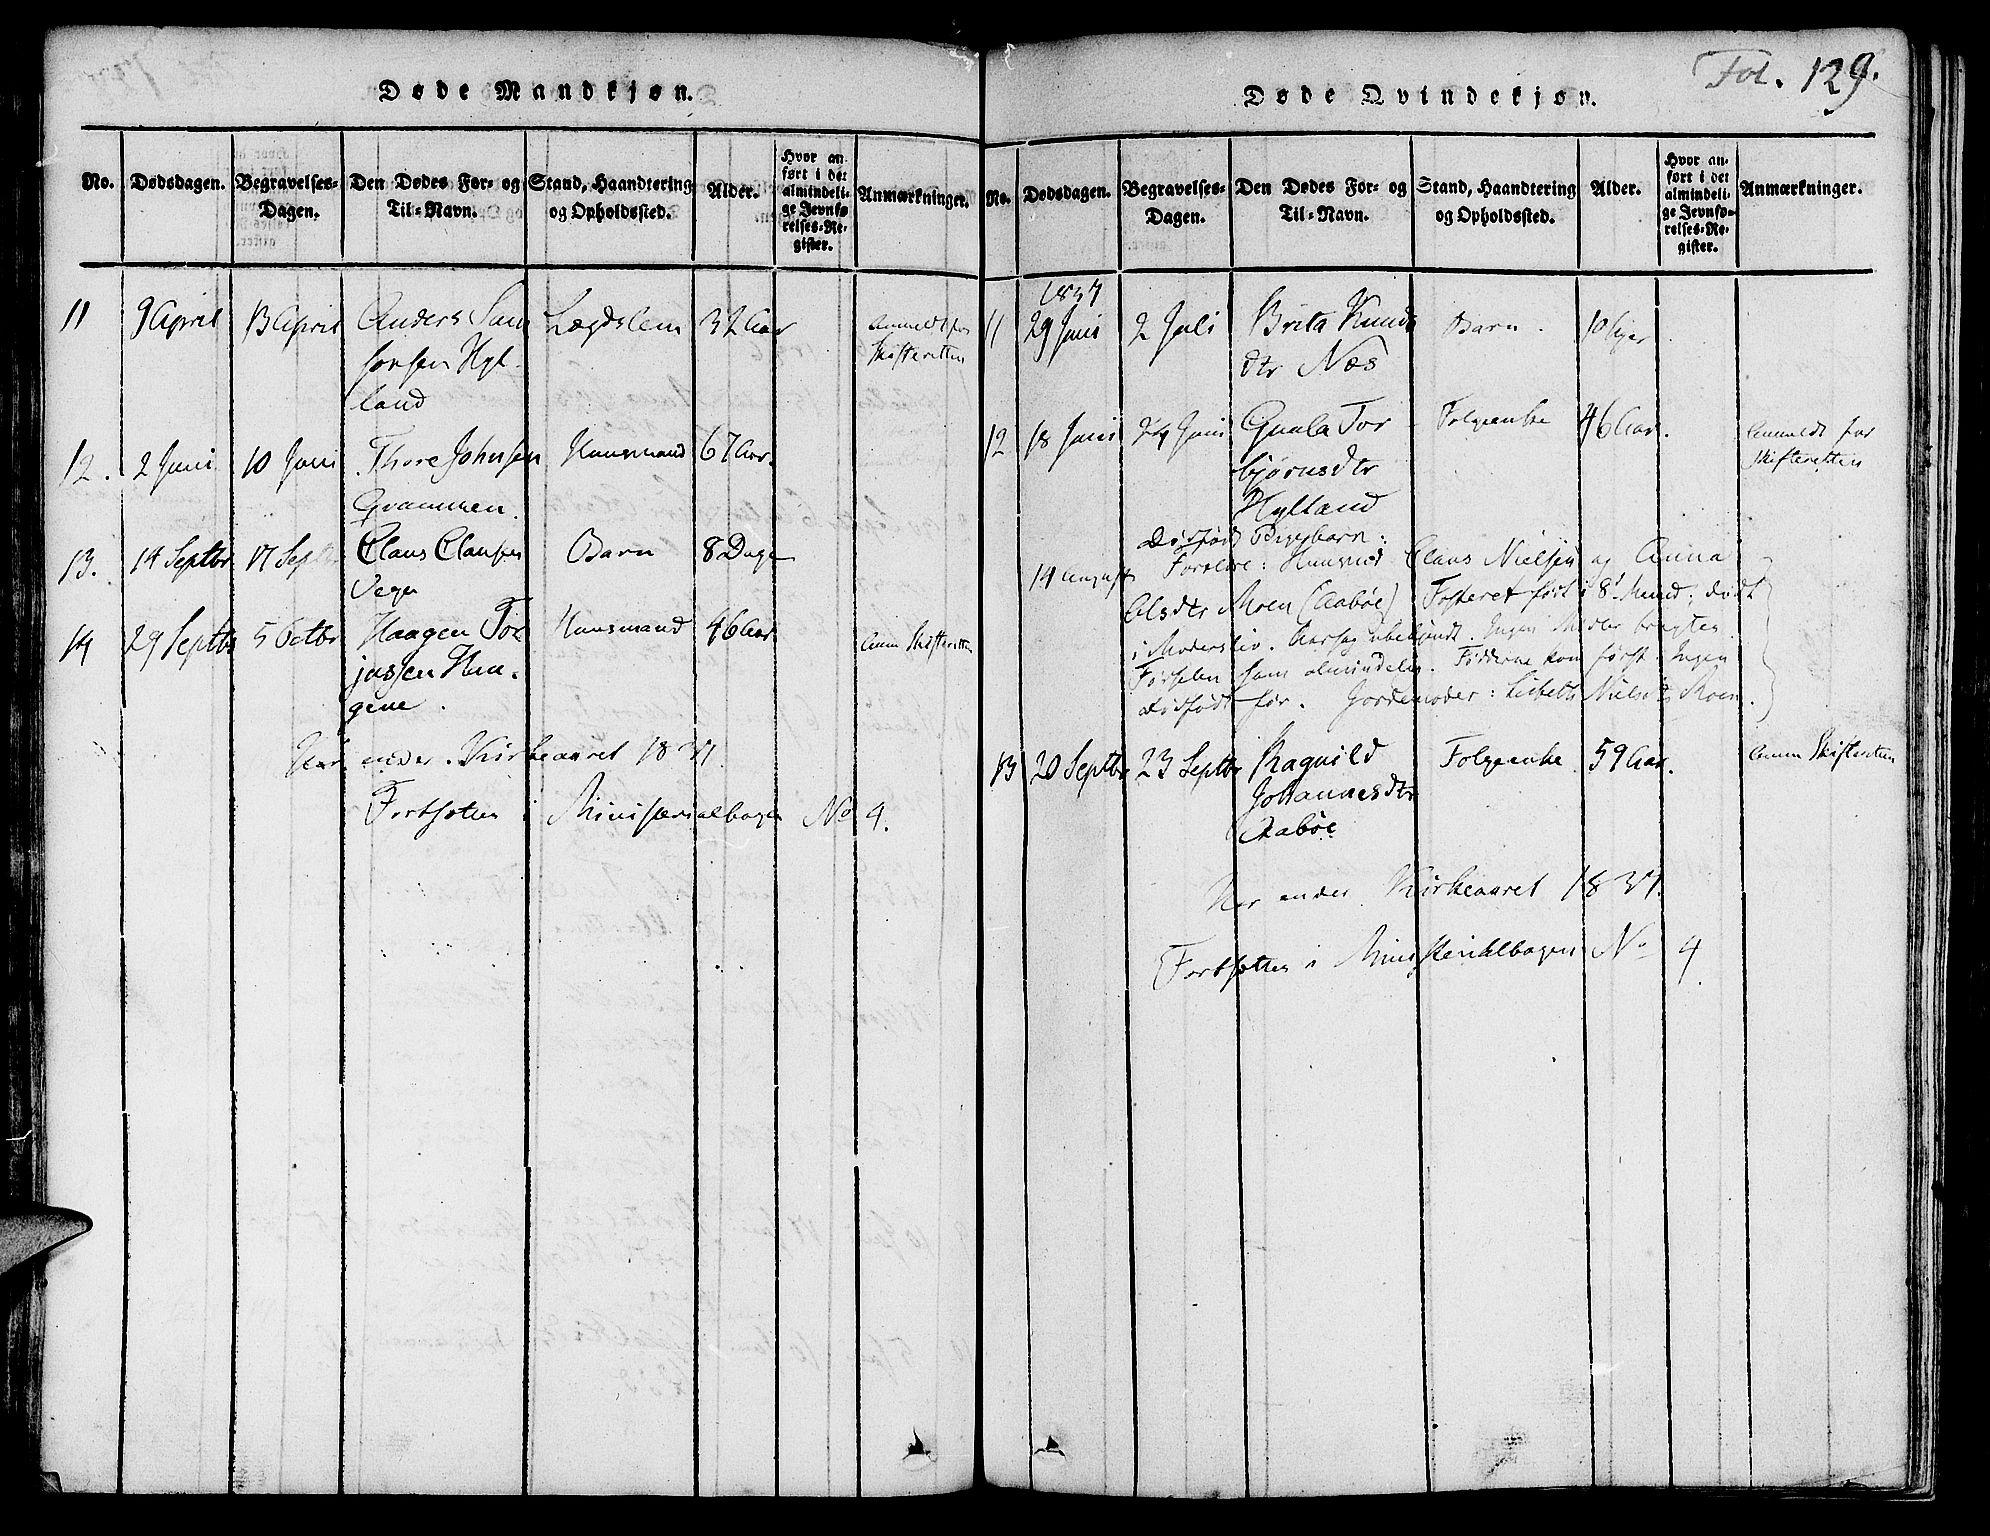 Døde Mandkjøn.
No. Dødsdagen. Begravelses-Dagen. Den Dødes For- og Til-Navn. Stand, Haandtering og Opholdssted. Alder. Hvor anført i det almindelige Jevnførelses-Register. Anmærkninger.
11 9 April 13 April Anders Sam Lægdslem 32 Aar Anmeldt for
sonsen Hyl Skifteretten
land
12. 2 Juni 10 Juni Thore Johnsen Huusmand 67 Aar.
Grammen.
13. 14 Septbr 17 Septbr Claus Clausen Barn 8 Dage
Vega
14 29 Septbr 5 Octbr Haagen Tor Huusmand 46 Aar Anm Skifteretten
jussen Hau
gene.
Her ender Kirkeaaret 1837.
Fortsættes i Ministerialbogen No 4.
Fol. 129.
Døde Qvindekjøn.
No. Dødsdagen. Begravelses-Dagen. Den Dødes For- og Til-Navn. Stand, Haandtering og Opholdssted. Alder. Hvor anført i det almindelige Jevnførelses-Register. Anmærkninger.
1837
11 29 Juni 2 Juli Brita Knuds Barn. 10 Uger
dtr Næs
12 18 Juni 24 Juni Gunla Tor Folgeenke 46 Aar. Anmeldt for
bjørnsdtr Skifteretten
Hylland
Dødfødt Pigebarn:
14 August Forældre: Huusmd Claus Nielsen og Anna
Olsdtr Moen (Aabøe) Fosteret født i 8d Maaned; dødt
i Modersliv. Aarsag ubekjendt. Ingen Midler brugtes.
Fødselen som almindelig. Fødderne kom først. Ingen
dødfødt før. Jordemoder: Lisbeth Nielsdtr Moen.
13 20 Septbr 23 Septbr Ragnild Folgeenke 59 Aar. Anm Skifteretten
Johannesdtr
Aabøe
Her ender Kirkeaaret 1837.
Fortsættes i Ministerialbogen No 4.